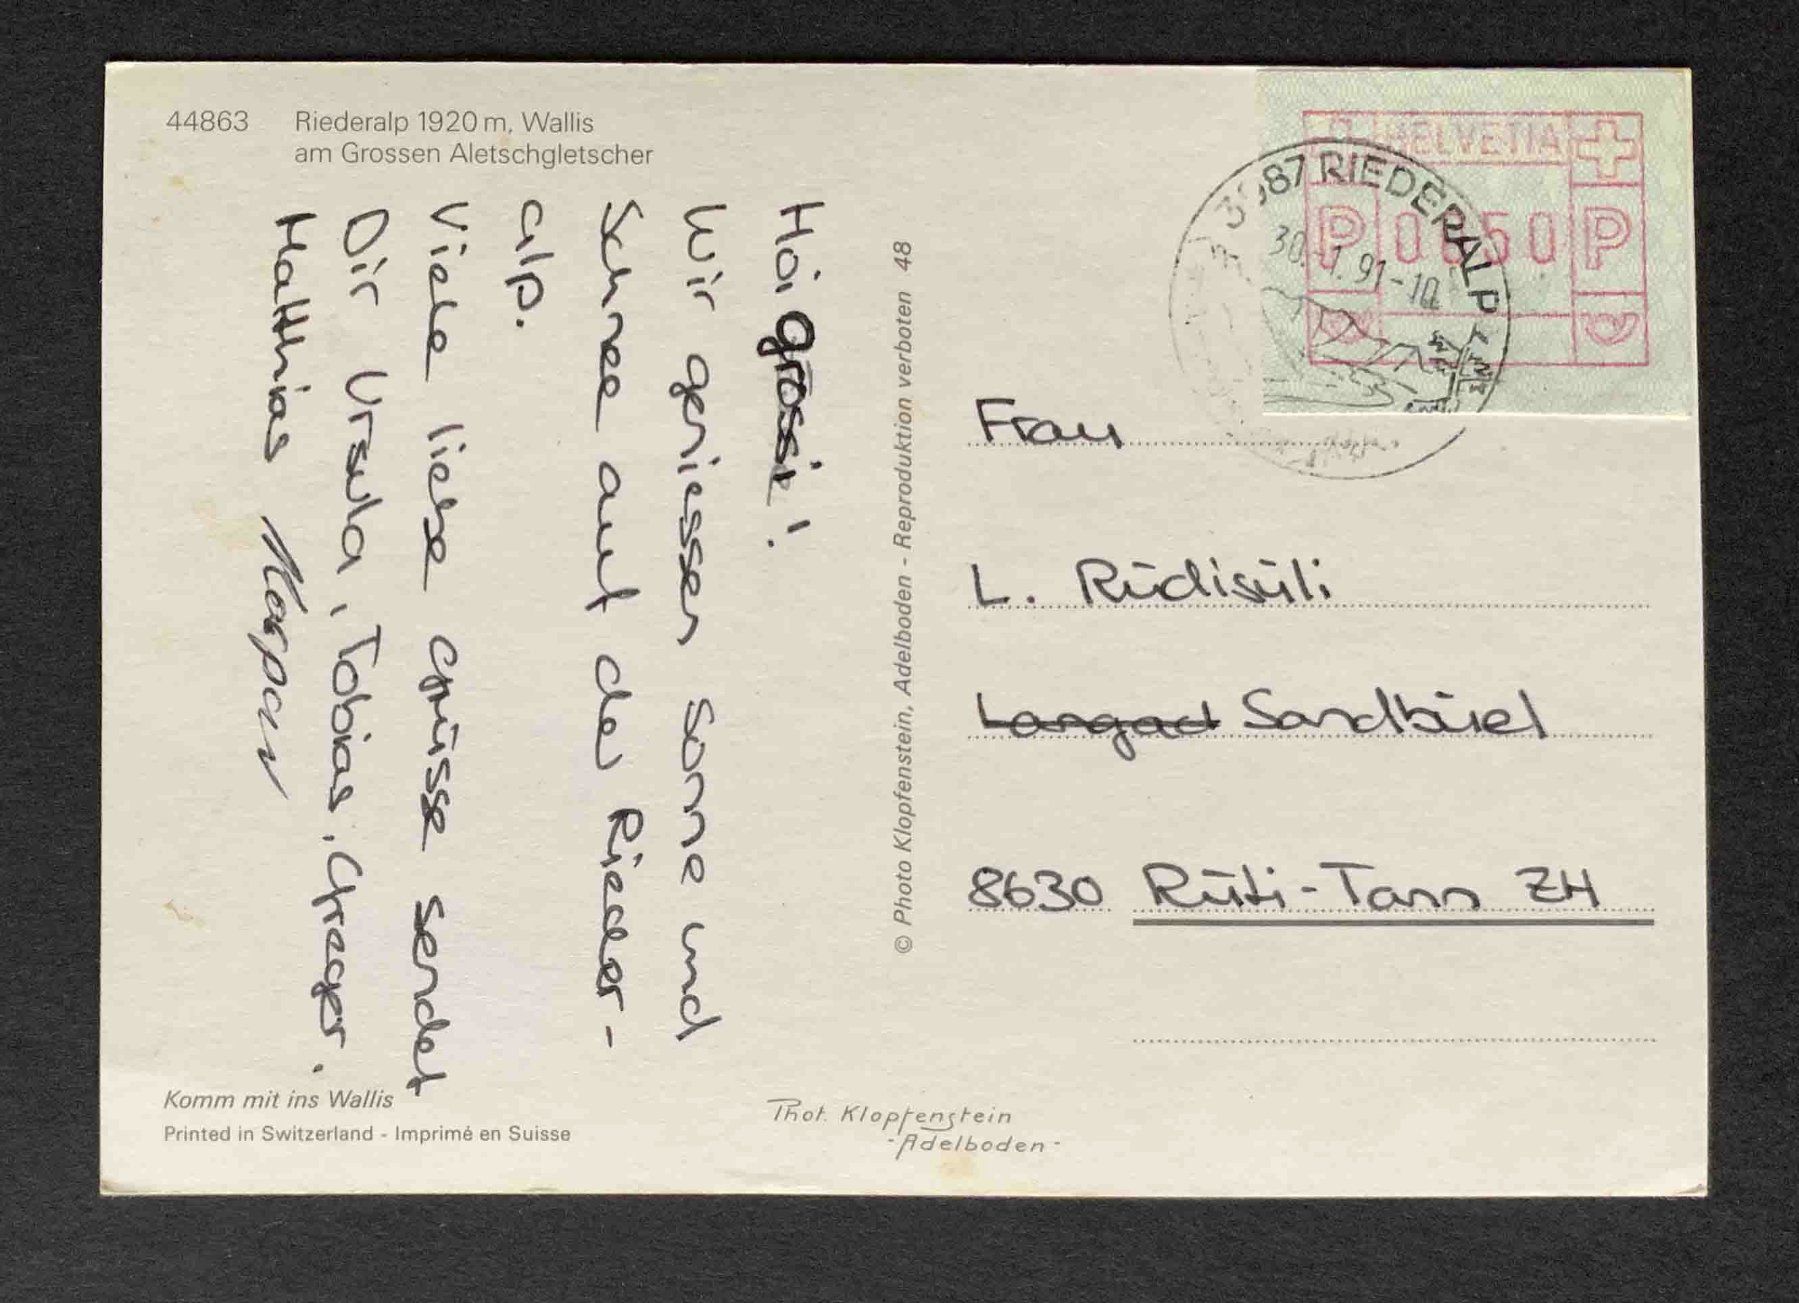 44863 Riederalp 1920 m, Wallis
am Grossen Aletschgletscher
Hoi grosi!
Wir geniessen Sonne und
Schnee auf der Rieder-
alp.
Viele liebe Grüsse sendet
Dir Ursula, Tobias, Gregor.
Matthias Kaspar
Komm mit ins Wallis
Printed in Switzerland - Imprimé en Suisse
© Photo Klopfenstein, Adelboden - Reproduktion verboten 48
Phot. Klopfenstein
- Adelboden -
HELVETIA
P 0050 P
3987 RIEDERALP
30.-1.91-10
Frau
L. Rüdisüli
Langad Sandbüel
8630 Rüti-Tann ZH